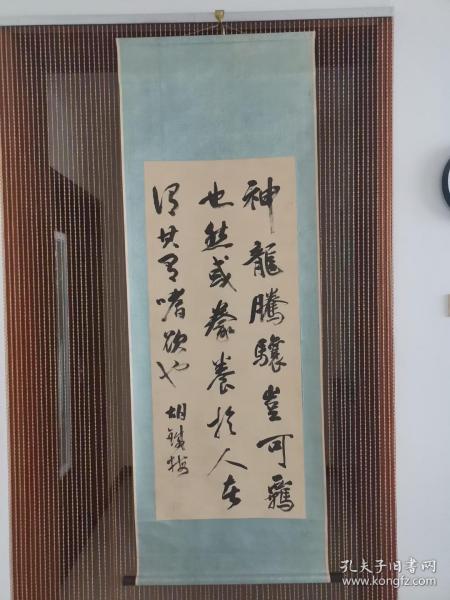 神龍騰驤豈可羈
也然或豢養於人者
謂其有嗜欲也
胡鐵梅
孔夫子旧书网
www.kongfz.com